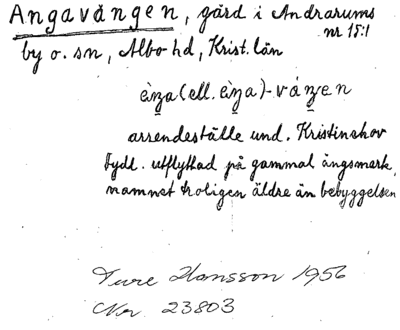 Angavången, gård i Andrarums
nr 15:1
by o. sn, Albo hd, Krist. län
arrendeställe und. Kristinehov
tydl. utflyttad på gammal ängsmark,
namnet troligen äldre än bebyggelsen
Ture Hansson 1956
Nr. 23803